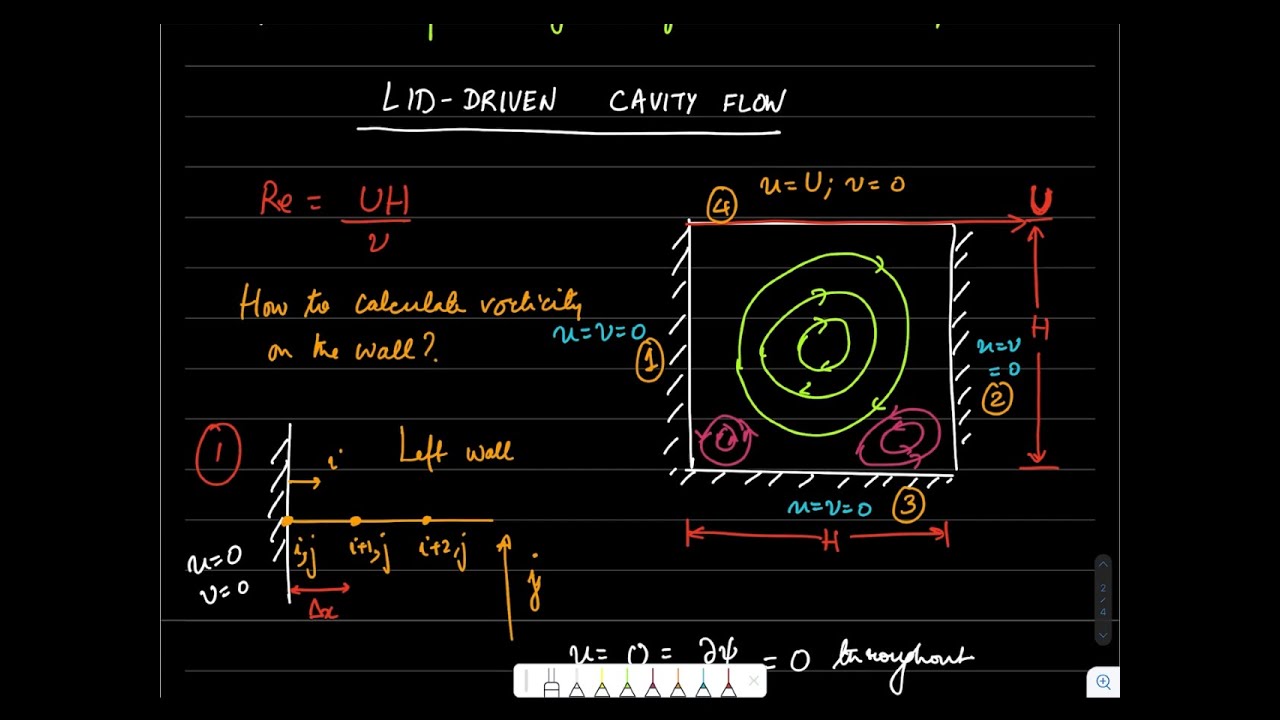 LID-DRIVEN CAVITY FLOW
Re = UH
ν
u=U; v=0
④
U
How to calculate vorticity
on the wall?
u=v=0
①
H
u=v
=0
②
① Left wall
i
i,j i+1,j i+2,j
u=0
v=0
Δx
j
u=v=0 ③
H
u= 0 = ∂ψ = 0 throughout
2
/
4